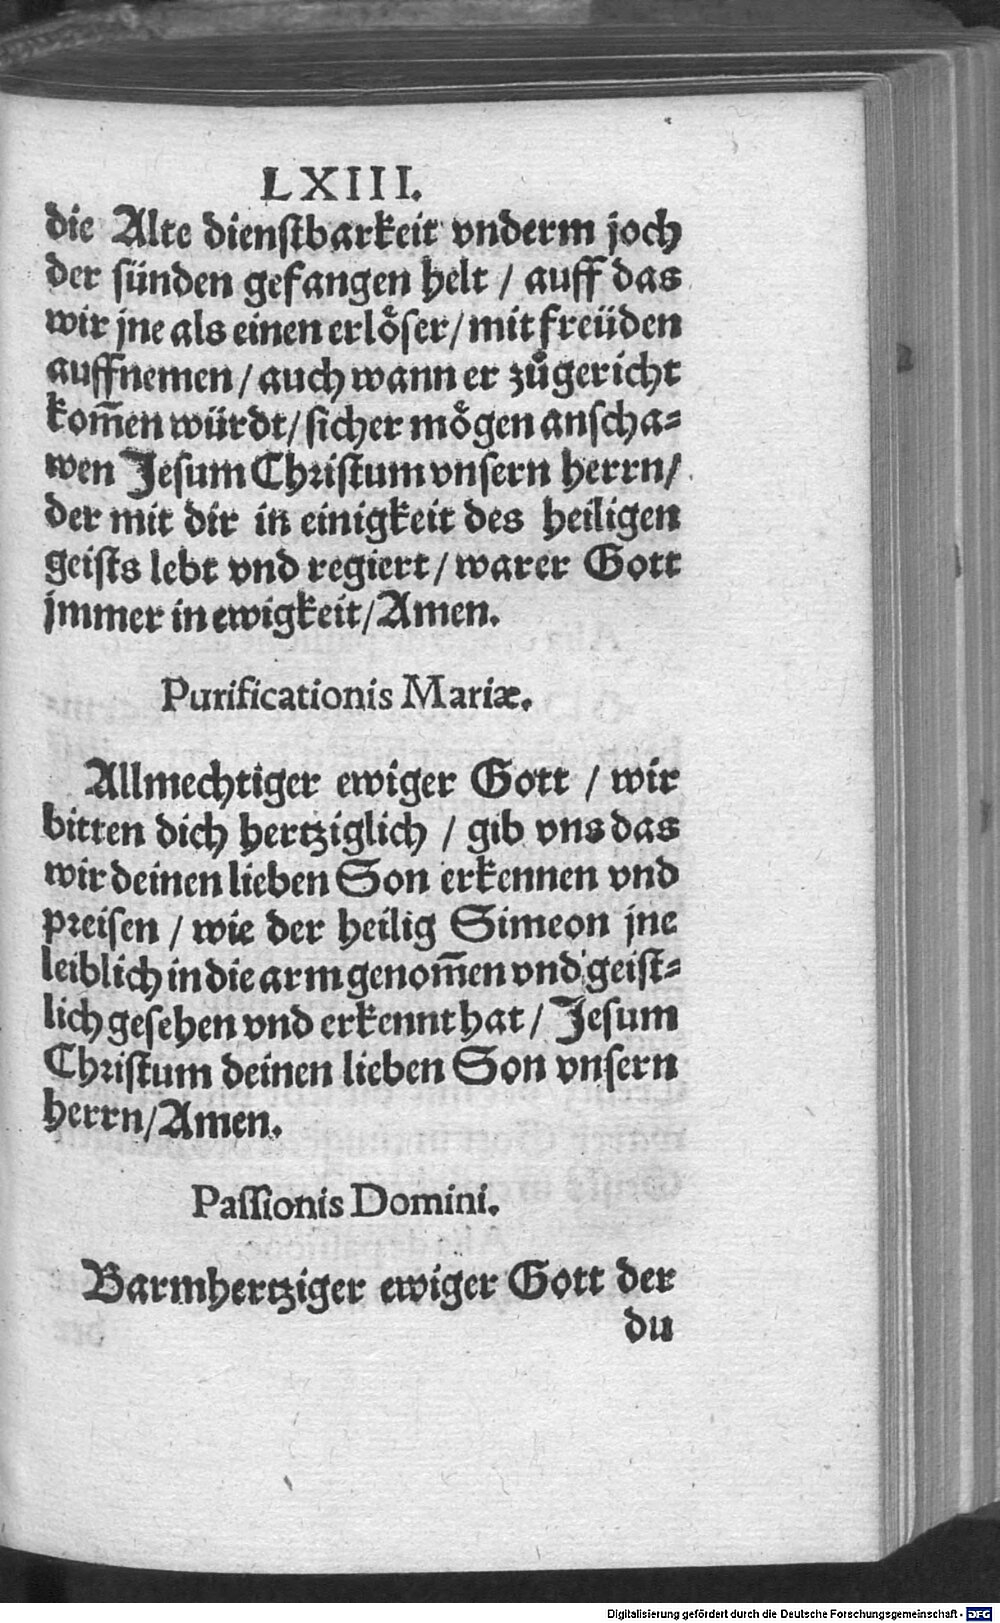 LXIII.
die Alte dienstbarkeit vnderm joch
der sünden gefangen helt / auff das
wir jne als einen erlöser / mit freüden
auffnemen / auch wann er zůgericht
kom̄en würdt / sicher mögen anscha⸗
wen Jesum Christum vnsern herrn /
der mit dir in einigkeit des heiligen
geists lebt vnd regiert / warer Gott
jmmer in ewigkeit / Amen.
Purificationis Mariæ.
Allmechtiger ewiger Gott / wir
bitten dich hertziglich / gib vns das
wir deinen lieben Son erkennen vnd
preisen / wie der heilig Simeon jne
leiblich in die arm genom̄en vnd geist⸗
lich gesehen vnd erkennt hat / Jesum
Christum deinen lieben Son vnsern
herrn / Amen.
Paſſionis Domini.
Barmhertziger ewiger Gott der
du
Digitalisierung gefördert durch die Deutsche Forschungsgemeinschaft - DFG